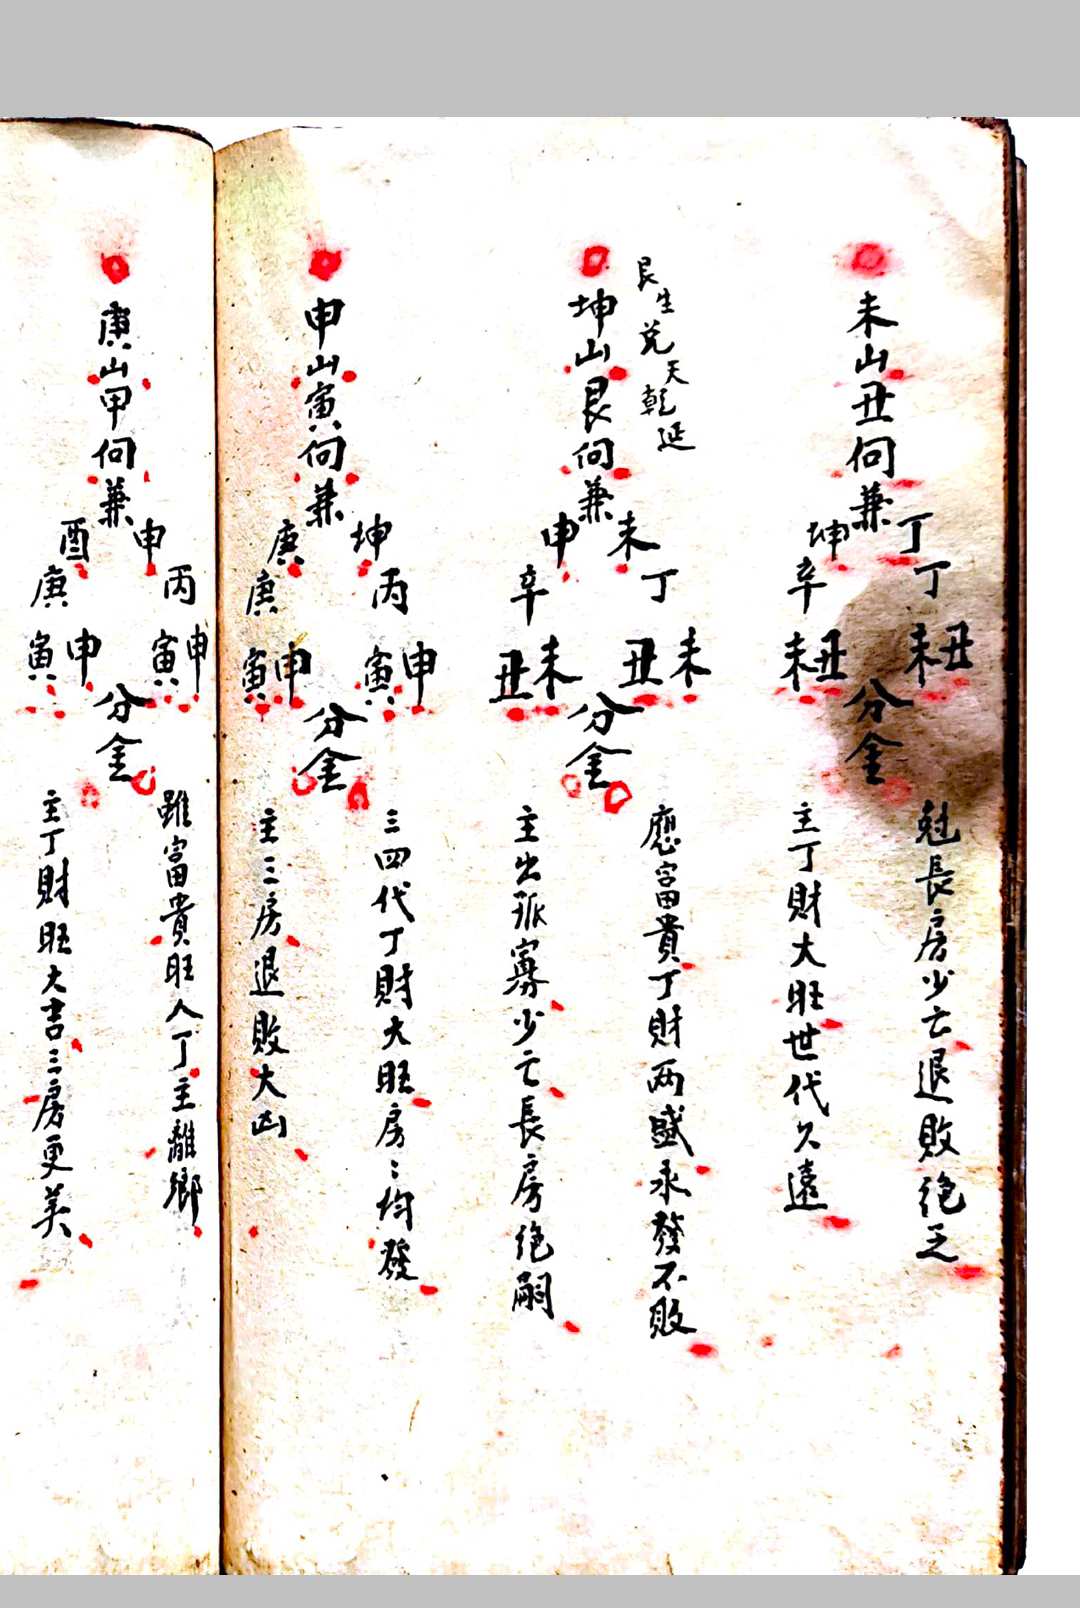 未山丑向兼
丁丁未丑
坤辛未丑
分金
尅長房少亡退敗絕乏
主丁財大旺世代久遠
艮生兌天乾延
坤山艮向兼
未丁丑未
申辛丑未
分金
應富貴丁財两盛永發不敗
主出孤寡少亡長房絕嗣
申山寅向兼
坤丙寅申
庚庚寅申
分金
三四代丁財大旺房〻均發
主三房退敗大凶
庚山甲向兼
申丙寅申
酉庚寅申
分金
雖富貴旺人丁主離鄉
主丁財旺大吉三房更美